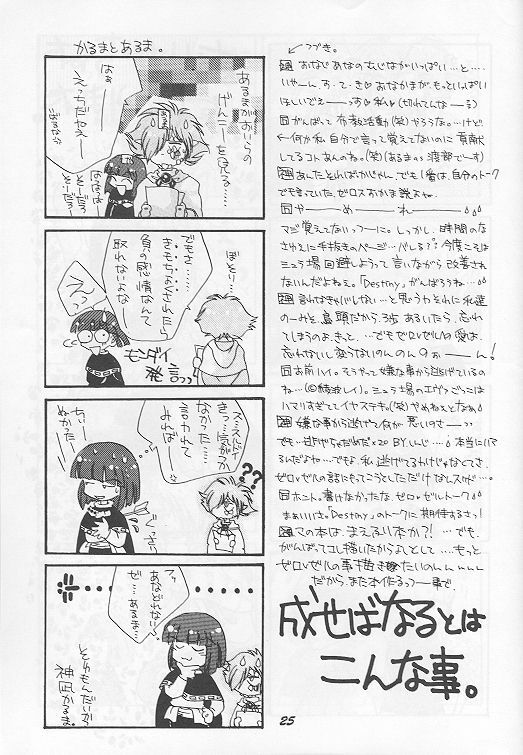 かるまとあるま。
あるまがおいらの
げんこーを見る……
はぁ
えっちだねえ
はははは
とーだろ
とーだろ
ぼそり…
でもさ……
きもちよくされたら
負の感情なんて
取れないよな
えっ
モンダイ
発言っっ
スッスルドイ
……気がつか
なかった……
言われて
みれば
ちぃー
ぬかった
ぐっさ
??
フッ
あなどれない
ぜ……あるま…
それもんだいか
神凪かるま。
つづき。
いやーん、す・て・き♡おなかまが、もっといっぱい
ほしいでえーーす♡私√(切れてんなーる)
がんばって布教活動(笑)やろうな。…けど
何か私自分で言って覚えてないのに貢献
してるコトあんのね。(笑)(あるまっs渡部でーす)
あんたとればかじゃん、でも1番は、自分のトーク
でも言っていた、ゼロスおかま説よね。
やーーめーーれーー
マジ覚えてないっつーに。しっかし、時間のな
さゆえに手抜きのページ…バレる?? 今度こそは
シュラ場回避しようって言いながら改善され
ないんだよねぇ。「Destiny」がんばろうね…
言わなきゃバレない…と思うわそれに私達
の一みそ、鳥頭だから、3歩あるいたら、忘れ
てしまうのよ、きっと。…でもゼロゼルへの愛は、
忘れないし変らないのんのんのぉーーん!
お前ハイ。そうやって嫌な事から逃げているの
ね…(@綾波レイ)。シュラ場のエヴァごっこは
ハマリすぎててイヤステキ。(笑)やめれぇとなれ
嫌な事から逃げて何が悪いのさーっ?
でも…逃げちゃだめだ×20 BYしんじ…本当にハマ
るんだよね…でもよ、私逃げてるわけじゃなくてさ、
ゼロゼルの話にもってこうとしただけなんスけど…
ホント。書けなかったな、ゼロ。ゼルトーク
まぁいいさ。「Destiny」のトークに期待するさっ!
マの本は、まえるり本か?!…でも、
がんばってコレ描いたからよしとして…もっと
ゼロゼルの事描きたいのんんんん
だから、また本作るっつー事で、
成せばなるとは
こんな事。
25